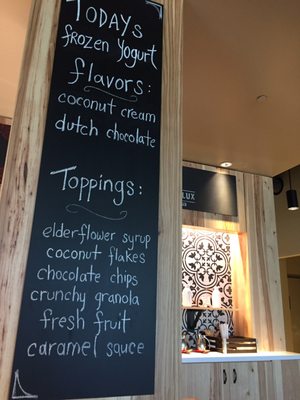 TODAYS
frozen Yogurt
flavors:
coconut cream
dutch chocolate
Toppings:
elderflower syrup
coconut flakes
chocolate chips
crunchy granola
fresh fruit
caramel sauce
LUX